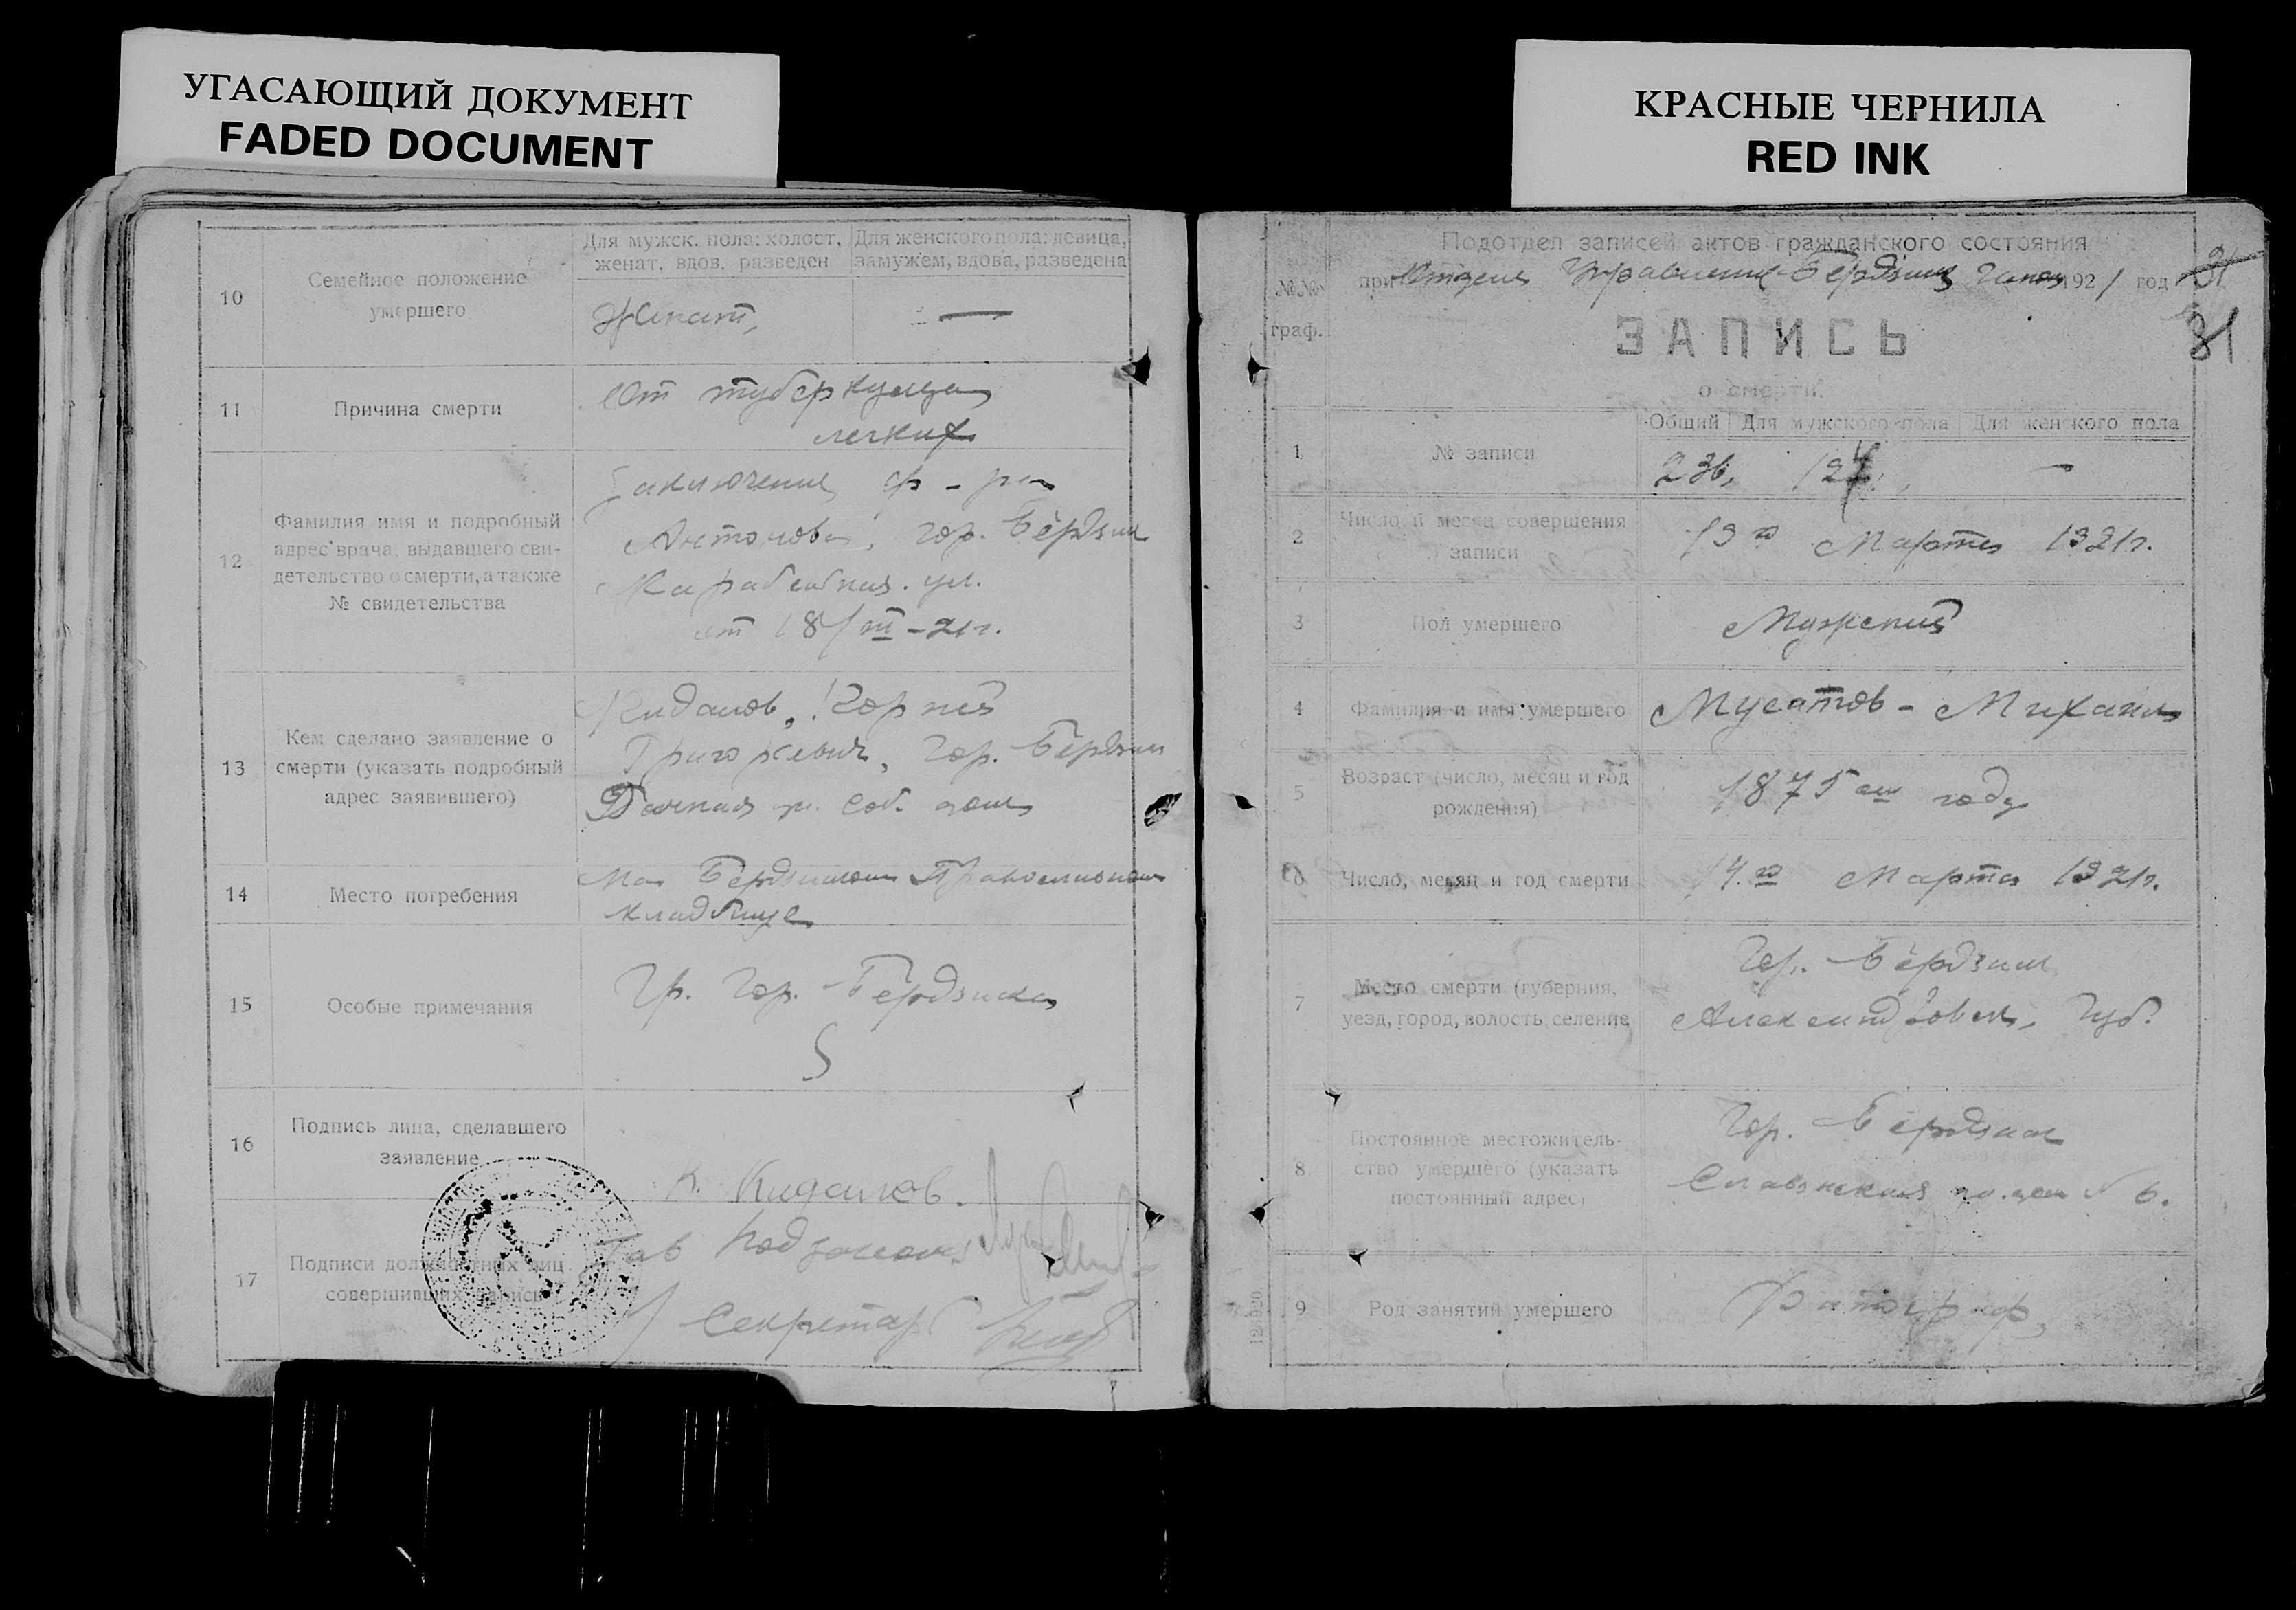 УГАСАЮЩИЙ ДОКУМЕНТ
FADED DOCUMENT
КРАСНЫЕ ЧЕРНИЛА
RED INK
10
Семейное положение
умершего
Для мужск. пола: холост,
женат, вдов, разведен
Для женского пола: девица,
замужем, вдова, разведена
Женат,
—
11
Причина смерти
От туберкулеза
легких
12
Фамилия имя и подробный
адрес врача, выдавшего сви-
детельство о смерти, а также
№ свидетельства
Заключение
Антонова, гор. Бердянск
ул.
от 18/III-21г.
13
Кем сделано заявление о
смерти (указать подробный
адрес заявившего)
Кидалов, Корней
Григорьевич, гор. Бердянск
Дачная ул. соб. дом
14
Место погребения
На Бердянском Православном
кладбище
15
Особые примечания
Гр. гор. Бердянска
16
Подпись лица, сделавшего
заявление
К. Кидалов.
17
Подписи должностных лиц
совершивших запись
Зав
Секретарь
№№
граф.
Подотдел записей актов гражданского состояния
при Отделе Управления Бердянск 1921 год
31
31
ЗАПИСЬ
о смерти.
1
№ записи
Общий
Для мужского пола
Для женского пола
236,
127,
—
2
Число и месяц совершения
записи
19го Марта 1921г.
3
Пол умершего
Мужской
4
Фамилия и имя умершего
Мусатов - Михаил
5
Возраст (число, месяц и год
рождения)
1875 ом году
6
Число, месяц и год смерти
17го Марта 1921г.
7
Место смерти (губерния,
уезд, город, волость, селение
Гор. Бердянск
Александровск. Губ.
8
Постоянное местожитель-
ство умершего (указать
постоянный адрес)
Гор. Бердянск
ул. дом № 6.
9
Род занятий умершего